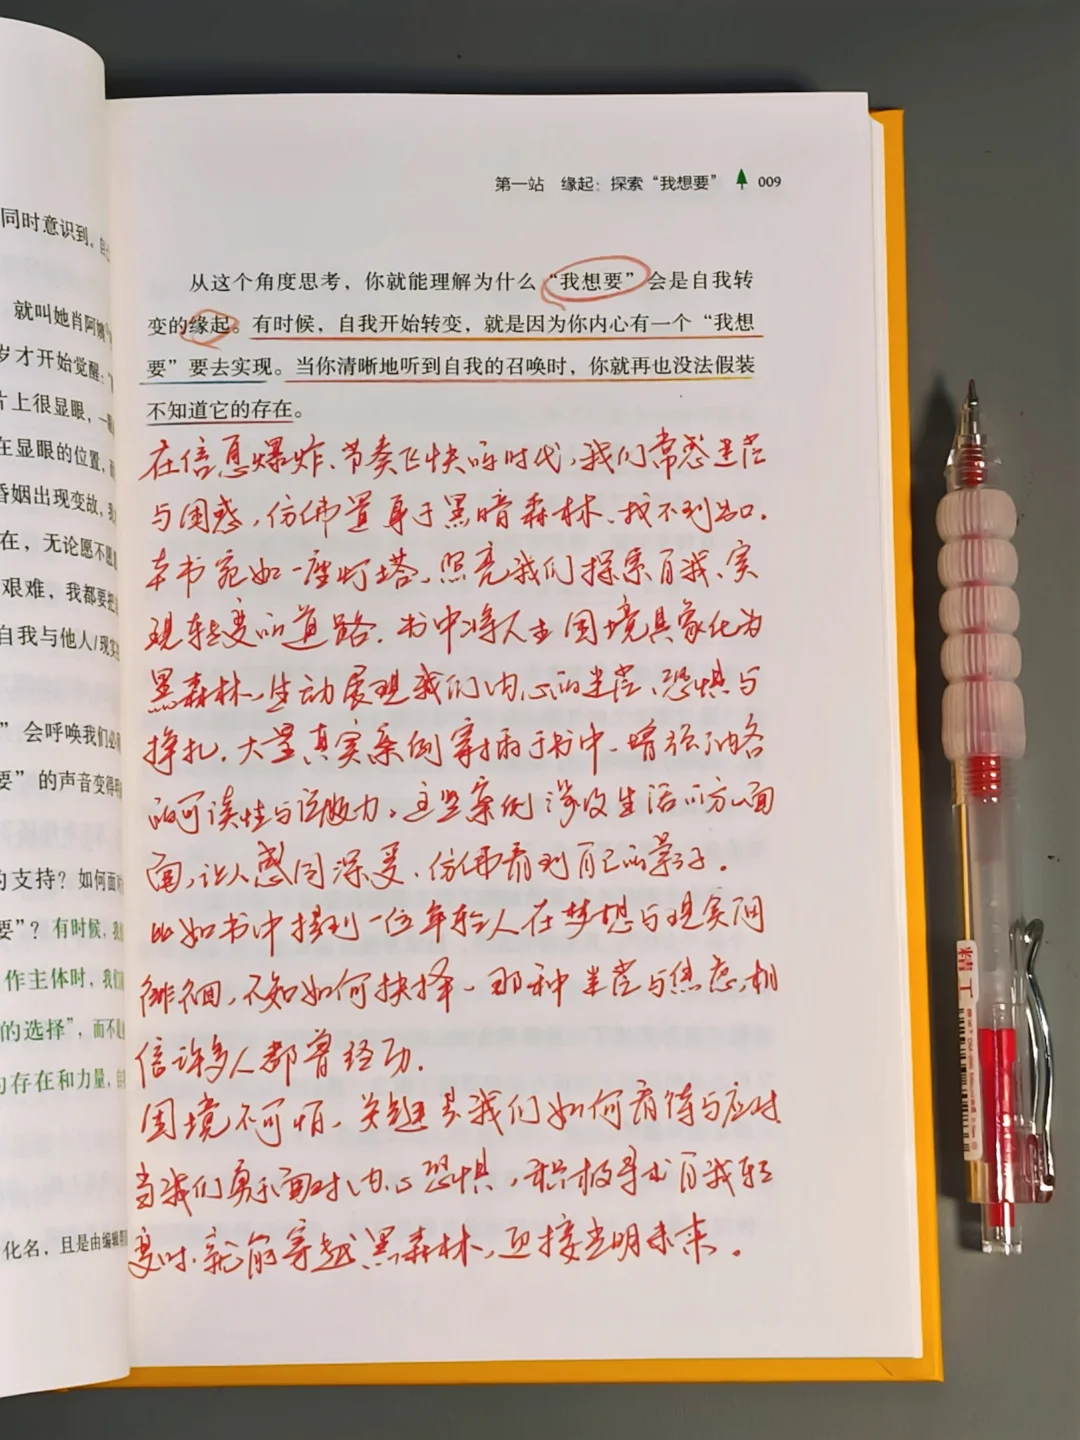 同时意识到，
就叫她肖阿
岁才开始觉醒：
片上很显眼，一
在显眼的位置，
婚姻出现变故，
在，无论愿不愿
艰难，我都要把
自我与他人/现实
”会呼唤我们必
要”的声音变得
的支持？如何面
要”？有时候，
作主体时，我们
的选择”，而不
的存在和力量，
化名，且是由编辑
第一站 缘起：探索“我想要” 009
从这个角度思考，你就能理解为什么“我想要”会是自我转
变的缘起。有时候，自我开始转变，就是因为你内心有一个“我想
要”要去实现。当你清晰地听到自我的召唤时，你就再也没法假装
不知道它的存在。
在信息爆炸、节奏飞快的时代，我们常感迷茫
与困惑，仿佛置身于黑暗森林、找不到出口.
本书宛如一座灯塔，照亮我们探索自我、实
现转变的道路. 书中将人生困境具象化为
黑森林，生动展现我们内心的迷茫、恐惧与
挣扎. 大量真实案例穿插于书中、增强了内容
的可读性与说服力。这些案例涉及生活的方方面
面，让人感同深受、仿佛看到自己的影子.
比如书中提到一位年轻人在梦想与现实间
徘徊，不知如何抉择、那种迷茫与焦虑，相
信许多人都曾经历.
困境不可怕、关键是我们如何看待与应对
当我们勇于面对内心恐惧，积极寻求自我转
变时、就能穿越黑森林，迎接光明未来。